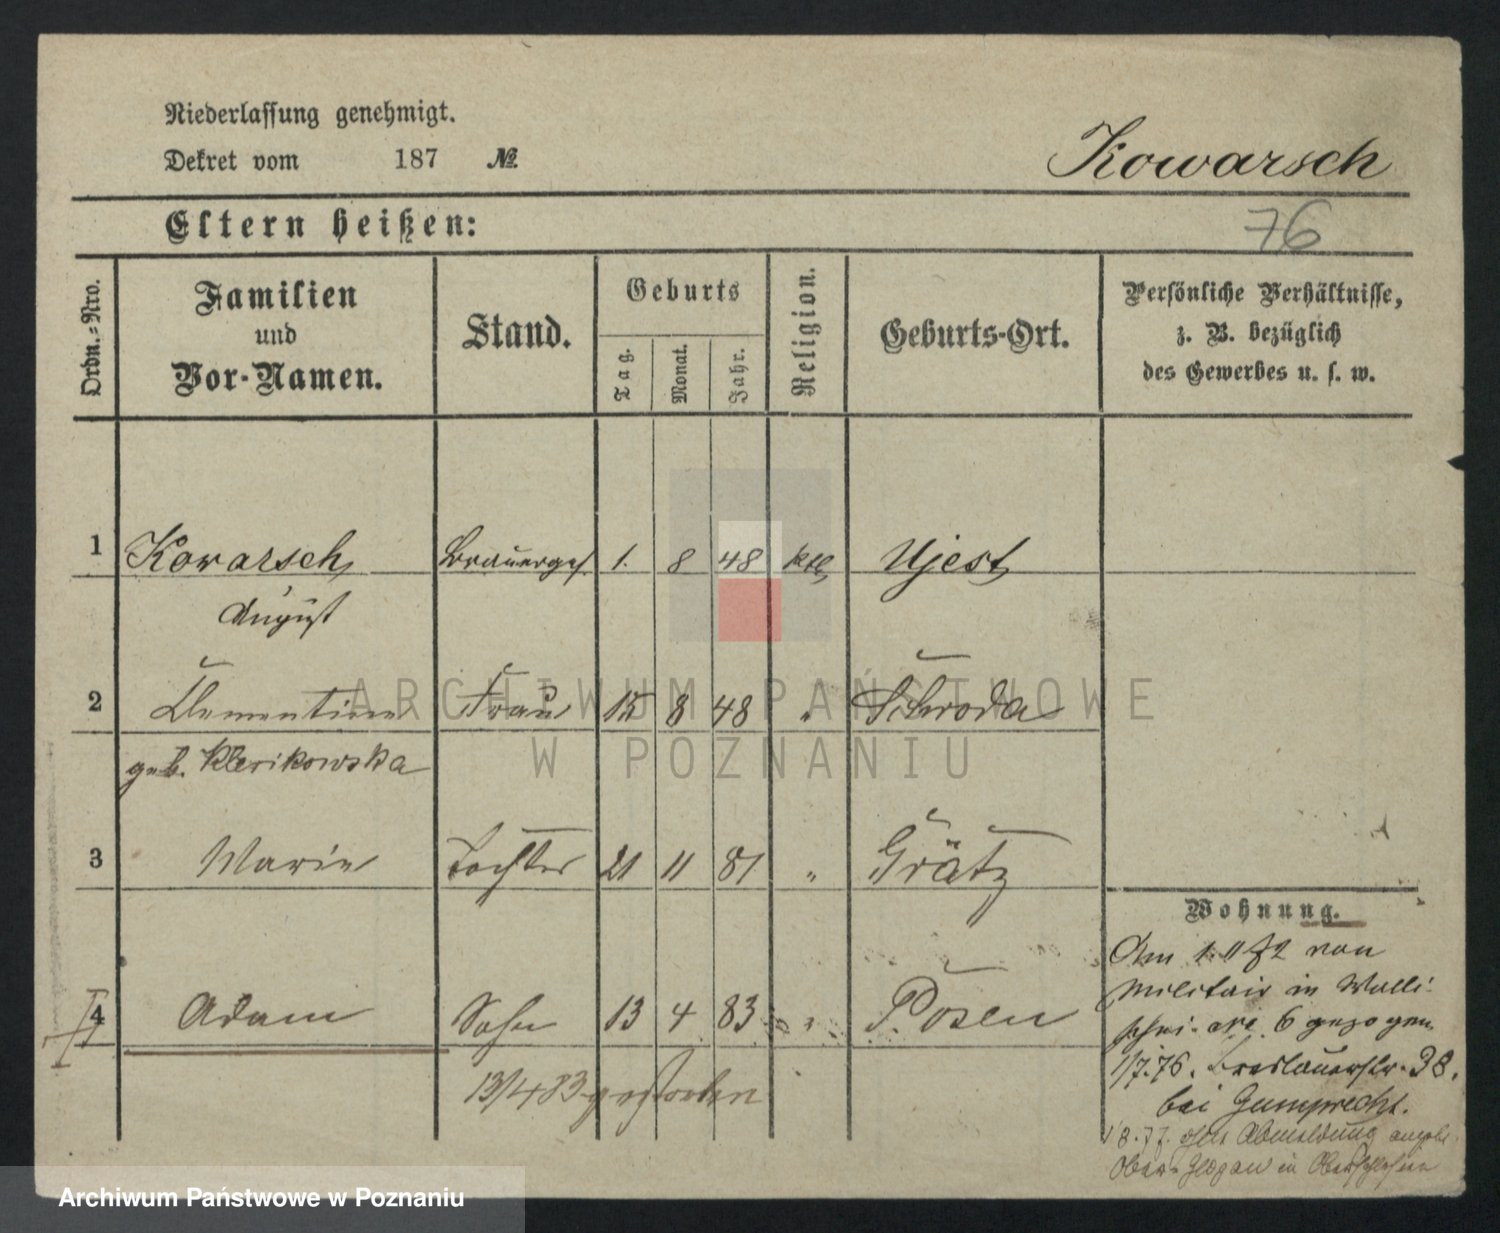 Niederlassung genehmigt.
Dekret vom 187 №
Kowarsch
Eltern heißen:
76
Ordn.-Nro.
Familien und Vor-Namen.
Stand.
Geburts
Tag.
Monat.
Jahr.
Religion.
Geburts-Ort.
Persönliche Verhältnisse,
z. B. bezüglich
des Gewerbes u. s. w.
1 Kowarsch Brauerges. 1. 8 48 kth Ujest
August
2 Clementine Frau 15 8 48 " Schroda
geb.
3 Marie Tochter 21 11 81 " Grätz
Wohnung.
4 Adam Sohn 13 4 83 " Posen
13/4 83 gestorben
Am 1. 11 72 von
Militair in Walli-
schei 6 gezogen
1/7.76. Breslauerstr. 38.
bei Gumprecht.
8.77. ohne Abmeldung
Ober-Glogau in Oberschlesien
ARCHIWUM PAŃSTWOWE
W POZNANIU
Archiwum Państwowe w Poznaniu